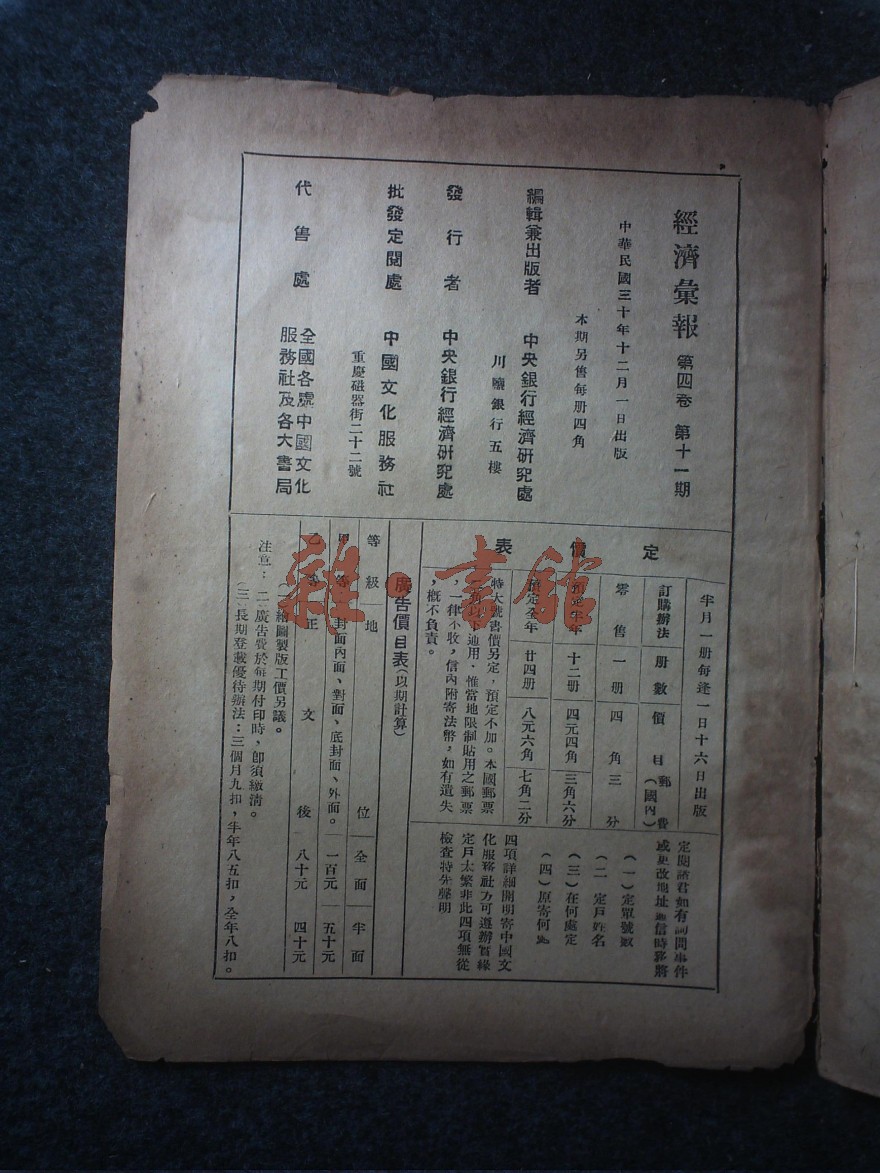 經濟彙報 第四卷 第十一期
中華民國三十年十二月一日出版
本期另售每册四角
編輯兼出版者 中央銀行經濟研究處
川鹽銀行五樓
發行者 中央銀行經濟研究處
批發定閱處 中國文化服務社
重慶磁器街二十二號
代售處 全國各處中國文化
服務社及各大書局
定價表
半月一册每逢一日十六日出版
訂購辦法 册數 價目 郵費(國內)
零售 一册 四角 三分
預定半年 十二册 四元四角 三角六分
預定全年 廿四册 八元六角 七角二分
特大號書價另定,預定不加。本國郵票
通用.惟當地限制貼用之郵票
,一律不收,信內附寄法幣,如有遺失
,概不負責。
定閱諸君如有詢問事件
或更改地址通信時務將
(一)定單號數
(二)定戶姓名
(三)在何處定
(四)原寄何處
四項詳細開明寄中國文
化服務社方可遵辦實緣
定戶太繁非此四項無從
檢查特先聲明
廣告價目表(以期計算)
等級 地位 全面 半面
甲等 封面內面、對面、底封面、外面。 一百元 五十元
乙等 正文後 八十元 四十元
注意:
(一)繪圖製版工價另議。
(二)廣告費於每期付印時,卽須繳清。
(三)長期登載優待辦法:三個月九扣,半年八五扣,全年八扣。
雜·書館